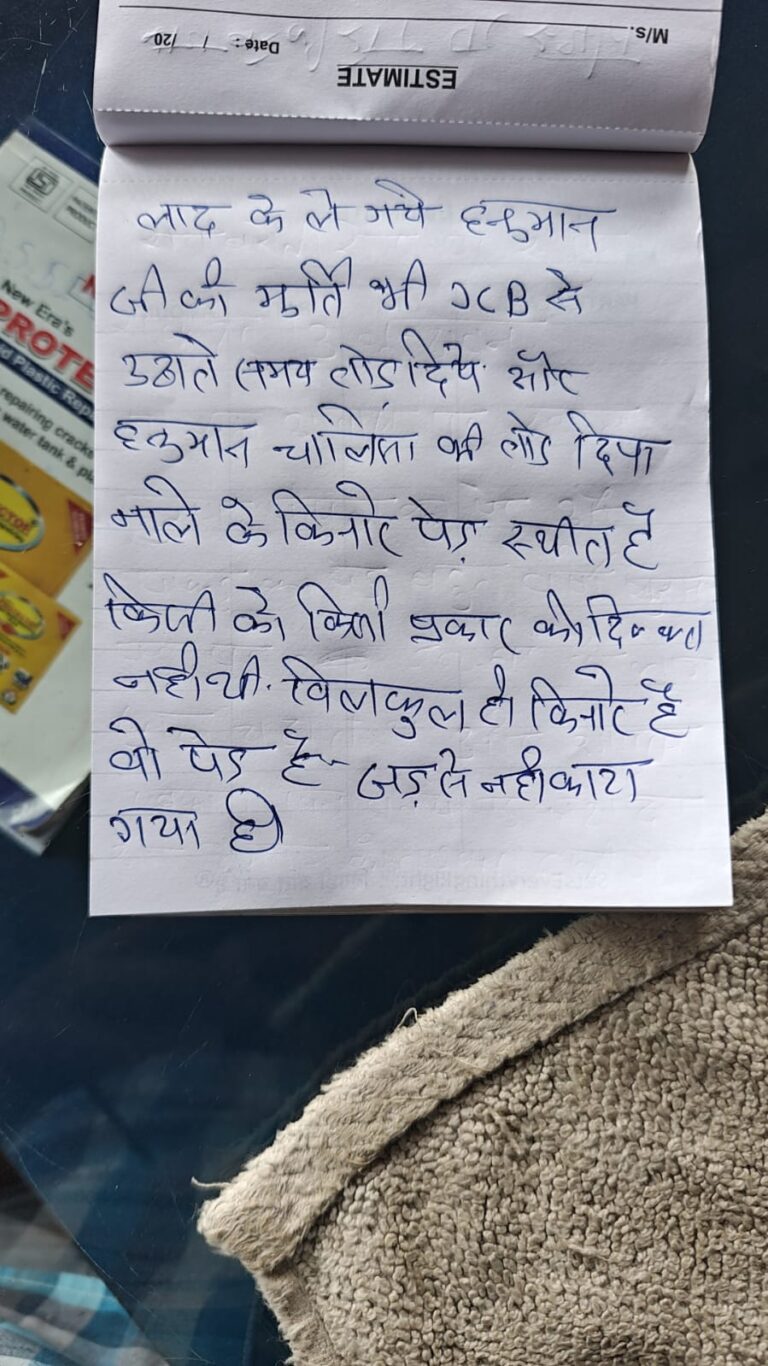 M/s.
Date : / /20
ESTIMATE
लाद के ले गये हनुमान
जी की मुर्ति भी JCB से
उठाते समय तोड़ दिये और
हनुमान चालिसा भी तोड़ दिया
नाले के किनारे पेड़ स्थीत है
किसी को किसी प्रकार की दिक्कत
नही थी. विलकुल ही किनारे है
वो पेड़ है जड़ से नही काटा
गया है।
New Era's
PROTE
d Plastic Rep
repairing cracke
water tank & p